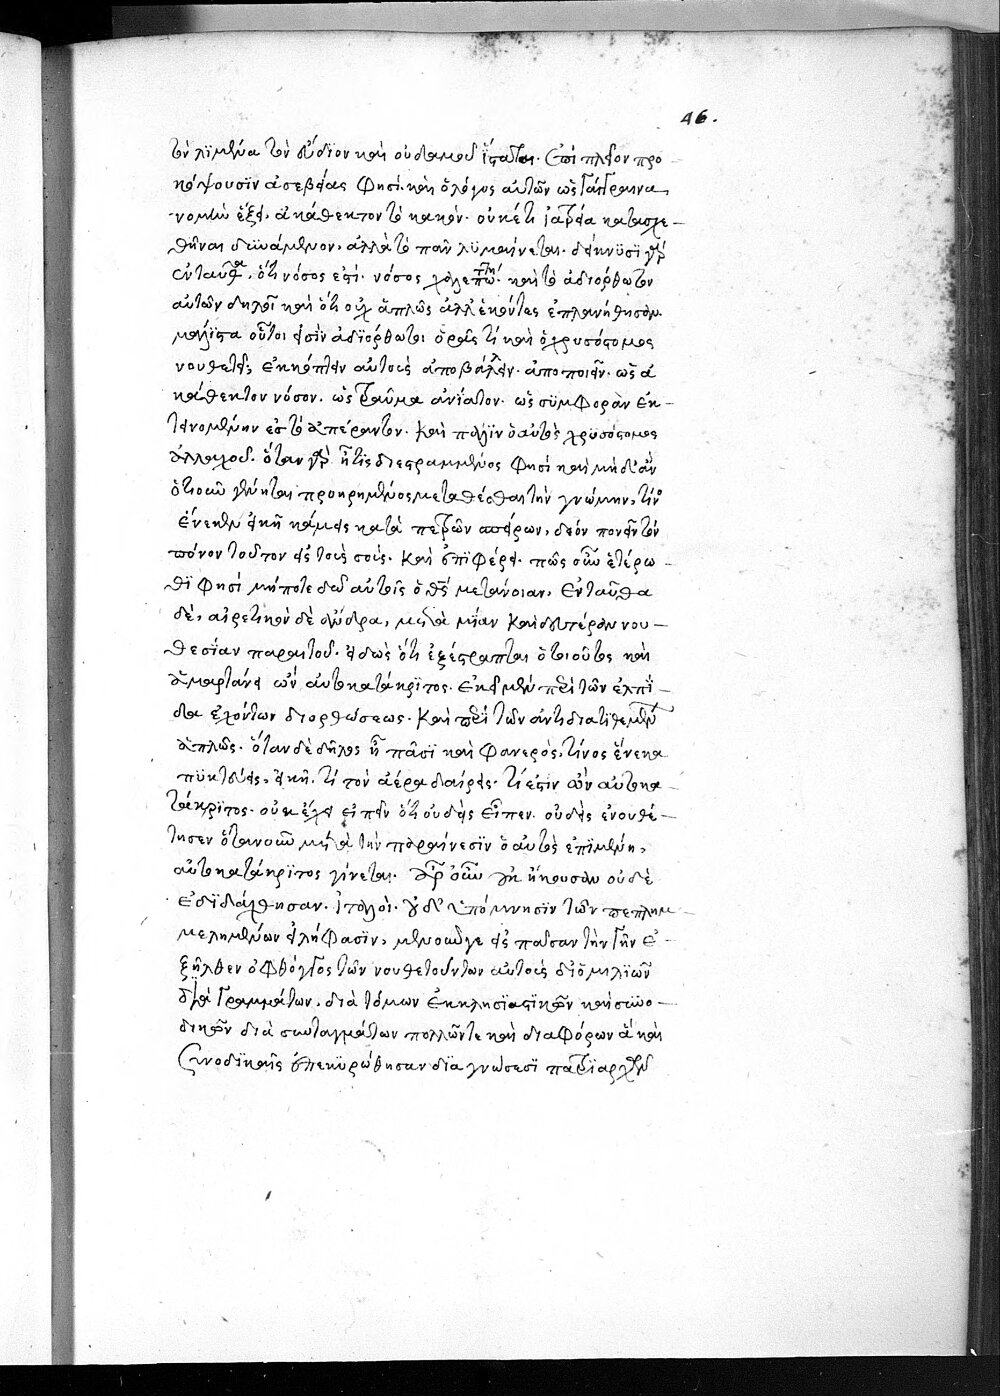 46.
τὸν λϊμένα τὸν εὔδϊον καὶ οὐδαμοῦ ἵσταται. ἐπὶ πλεῖον προ
κόψουσϊν ἀσεβείας φησί. καὶ ὁ λόγος αὐτῶν ὡς γάγγραινα
νομὴν ἕξει, ἀκάθεκτον τὸ κακὸν. οὐκέτι ἰατρεία κατασχε
θῆναι δυνάμενον, ἀλλὰ τὸ πᾶν λϋμαίνεται. δείκνϋσι γὰρ
ἐνταῦθα, ὅτι νόσος ἐστί. νόσος χαλεπὴ. καὶ τὸ ἀδιόρθωτον
αὐτῶν δηλοῖ καὶ ὅτι οὐχ ἁπλῶς ἀλλ' ἑκόντες ἐπλανήθησαν.
μάλϊστα οὗτοι εἰσϊν ἀδϊόρθωτοι ὁρᾶς τί καὶ ὁ χρυσόστομος
νουθετεῖ; ἐκκόπτειν αὐτοὺς ἀποβάλλειν. ἀποποιεῖν. ὡς ἀ
κάθεκτον νόσον. ὡς τραῦμα ἀνίατον. ὡς σϋμφορὰν ἐκ
τεινομένην εἰς τὸ ἀπέραντον. καὶ πάλϊν ὁ αὐτὸς χρϋσόστομος
ἀλλαχοῦ. ὅταν γὰρ ᾖ τὶς διεστραμμένος φησὶ καὶ μὴ δ' ἂν
ὁτιοῦν γένηται προῃρημένος μεταθέσθαι τὴν γνώμην, τίνος
ἕνεκεν εἰκῆ κάμεις κατὰ πετρῶν σπείρων, δέον πονεῖν τὸν
πόνον τοῦτον εἰς τοὺς σοὺς. καὶ ἐπϊφέρει. πῶς οὖν ἑτέρω
θϊ φησὶ μήποτε δῶ αὐτοῖς ὁ θεὸς μετάνοιαν, ἐνταῦθα
δὲ, αἱρετϊκὸν δὲ ἄνδρα, μετὰ μϊαν καὶ δευτέραν νου
θεσίαν παραιτοῦ. εἰδὼς ὅτι ἐξέστραπται ὁ τοιοῦτος καὶ
ἁμαρτάνει ὢν αὐτοκατάκρϊτος. ἐκεῖ μὲν περὶ τῶν ἐλπϊ
δα ἐχόντων διορθώσεως. καὶ περὶ τῶν ἀντιδιατϊθεμένων
ἁπλῶς. ὅταν δὲ δῆλος ᾖ πᾶσϊ καὶ φανερὸς, τίνος ἕνεκα
πϋκτεύεις εἰκῆ. τί τὸν ἀέρα δαίρεις. τί ἐστιν ὢν αὐτοκα
τάκρϊτος. οὐκ ἔχει εἰπεῖν ὅτι οὐδεὶς εἶπεν. οὐδεὶς ἐνουθέ
τησεν ὅταν οὖν μετὰ τὴν παραίνεσϊν ὁ αὐτὸς ἐπϊμένη,
αὐτοκατάκρϊτος γίνεται. ἆρ' οὖν οὐκ ἤκουσαν οὐδὲ
ἐδϊδάχθησαν. ἰταλοὶ. οὐδ' ὑπόμνησϊν τῶν πεπλημ
μελημένων εἰλήφασϊν, μενοῦνγε εἰς πᾶσαν τὴν γῆν ἐ
ξῆλθεν ὁ φθόγγος τῶν νουθετούντων αὐτοὺς δϊ' ὁμϊλϊῶν
διὰ γραμμάτων. διὰ τόμων ἐκκλησϊαστϊκῶν καὶ συνο
δικῶν διὰ συνταγμάτων πολλῶν τε καὶ διαφόρων ἃ καὶ
συνοδϊκαῖς ἐπεκϋρώθησαν δϊαγνώσεσϊ πατρϊαρχῶν